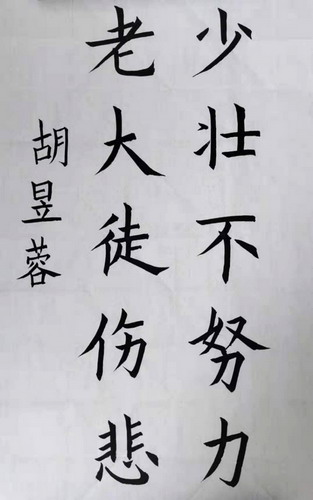 少壮不努力
老大徒伤悲
胡昱蓉